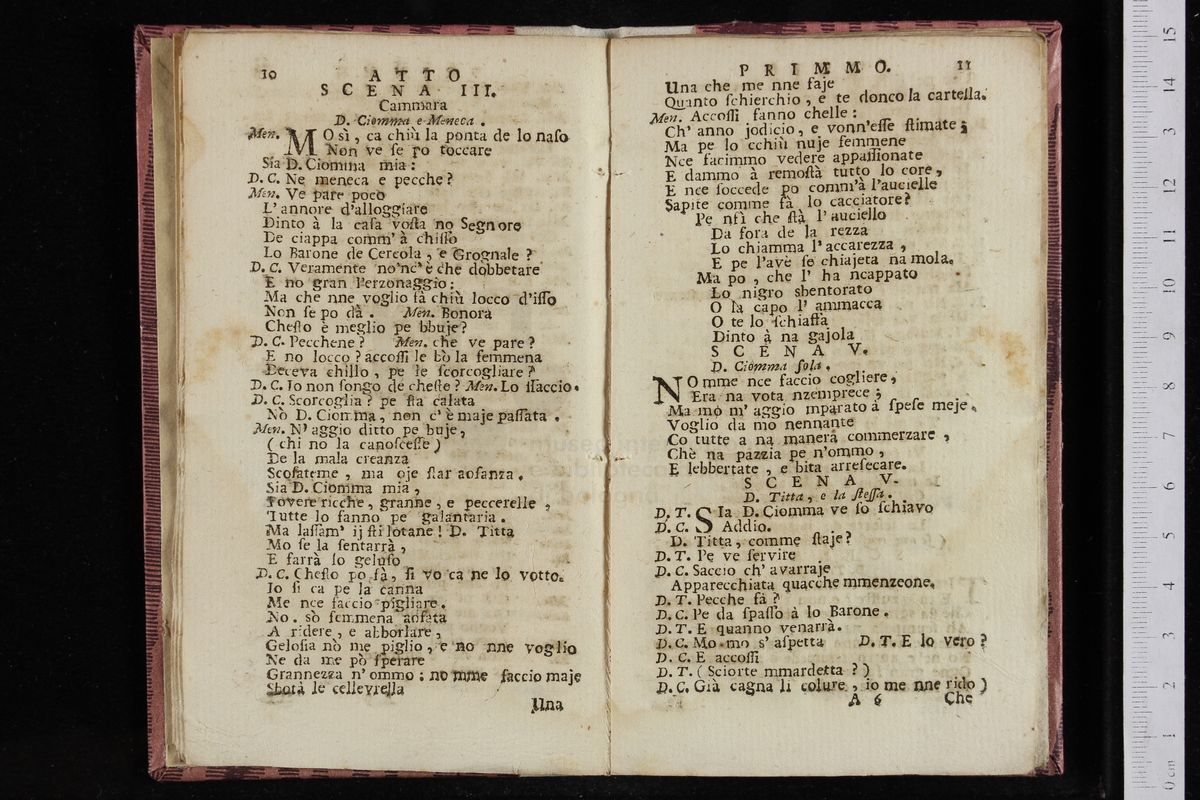 10
ATTO
SCENA III.
Cammara
D. Ciomma e Meneca .
Men. MO sì , ca chiù la ponta de lo naſo
Non ve ſe po toccare
Sia D. Ciomma mia :
D. C. Ne meneca e pecche ?
Men. Ve pare poco
L' annore d'alloggiare
Dinto à la caſa voſta no Segnore
De ciappa comm' à chiſſo
Lo Barone de Cercola , e Grognale ?
D. C. Veramente no'nc' è che dobbetare
E no gran Perzonaggio :
Ma che nne voglio fà chiù locco d'iſſo
Non ſe po dà . Men. Bonora
Cheſto è meglio pe bbuje ?
D. C. Pecchene ? Men. che ve pare ?
E no locco ? accoſſì le bò la femmena
Deceva chillo , pe le ſcorcogliare ?
D. C. Io non ſongo de cheſte ? Men. Lo ſſaccio.
D. C. Scorcoglia ? pe ſta calata
Nò D. Ciomma , non c' è maje paſſata .
Men. N' aggio ditto pe buje ,
( chi no la canoſceſſe )
De la mala creanza
Scoſateme , ma oje ſtar aoſanza .
Sia D. Ciomma mia ,
Povere ricche , granne , e peccerelle ,
Tutte lo fanno pe galantaria .
Ma laſſam' ij ſti lotane ! D. Titta
Mo ſe la ſentarrà ,
E farrà lo geluſo
D. C. Cheſto po fà , ſi vo ca ne lo votto.
Io ſi ca pe la canna
Me nce faccio pigliare .
No . sò femmena aoſata
A ridere , e abborlare ,
Geloſia nò me piglio , e no nne voglio
Ne da me pò ſperare
Grannezza n' ommo ; no mme faccio maje
Sbotà le cellevrella
Una
PRIMMO. 11
Una che me nne faje
Quanto ſchierchio , e te donco la cartella.
Men. Accoſſì fanno chelle :
Ch' anno jodicio , e vonn'eſſe ſtimate ;
Ma pe lo cchiù nuje femmene
Nce facimmo vedere appaſſionate
E dammo à remoſtà tutto lo core ,
E nce ſoccede po comm'à l'aucielle
Sapite comme fà lo cacciatore ?
Pe nſì che ſtà l' auciello
Da fora de la rezza
Lo chiamma l' accarezza ,
E pe l'avè ſe chiajeta na mola.
Ma po , che l' ha ncappato
Lo nigro sbentorato
O la capo l' ammacca
O te lo ſchiaffa
Dinto à na gajola
SCENA V.
D. Ciomma ſola .
NO mme nce faccio cogliere ,
Era na vota nzemprece ;
Ma mò m' aggio mparato à ſpeſe meje .
Voglio da mo nennante
Co tutte a na manera commerzare ,
Chè na pazzia pe n'ommo ,
E lebbertate , e bita arreſecare.
SCENA V.
D. Titta , e la ſteſſa .
D. T. SIa D. Ciomma ve ſo ſchiavo
D. C. Addio.
D. Titta , comme ſtaje ?
D. T. Pe ve ſervire
D. C. Saccio ch' avarraje
Apparecchiata quacche mmenzeone.
D. T. Pecche fà ?
D. C. Pe da ſpaſſo à lo Barone .
D. T. E quanno venarrà.
D. C. Mo mo s' aſpetta D. T. E lo vero ?
D. C. E accoſſì
D. T. ( Sciorte mmardetta ? )
D. C. Già cagna li colure , io me nne rido )
A 6 Che